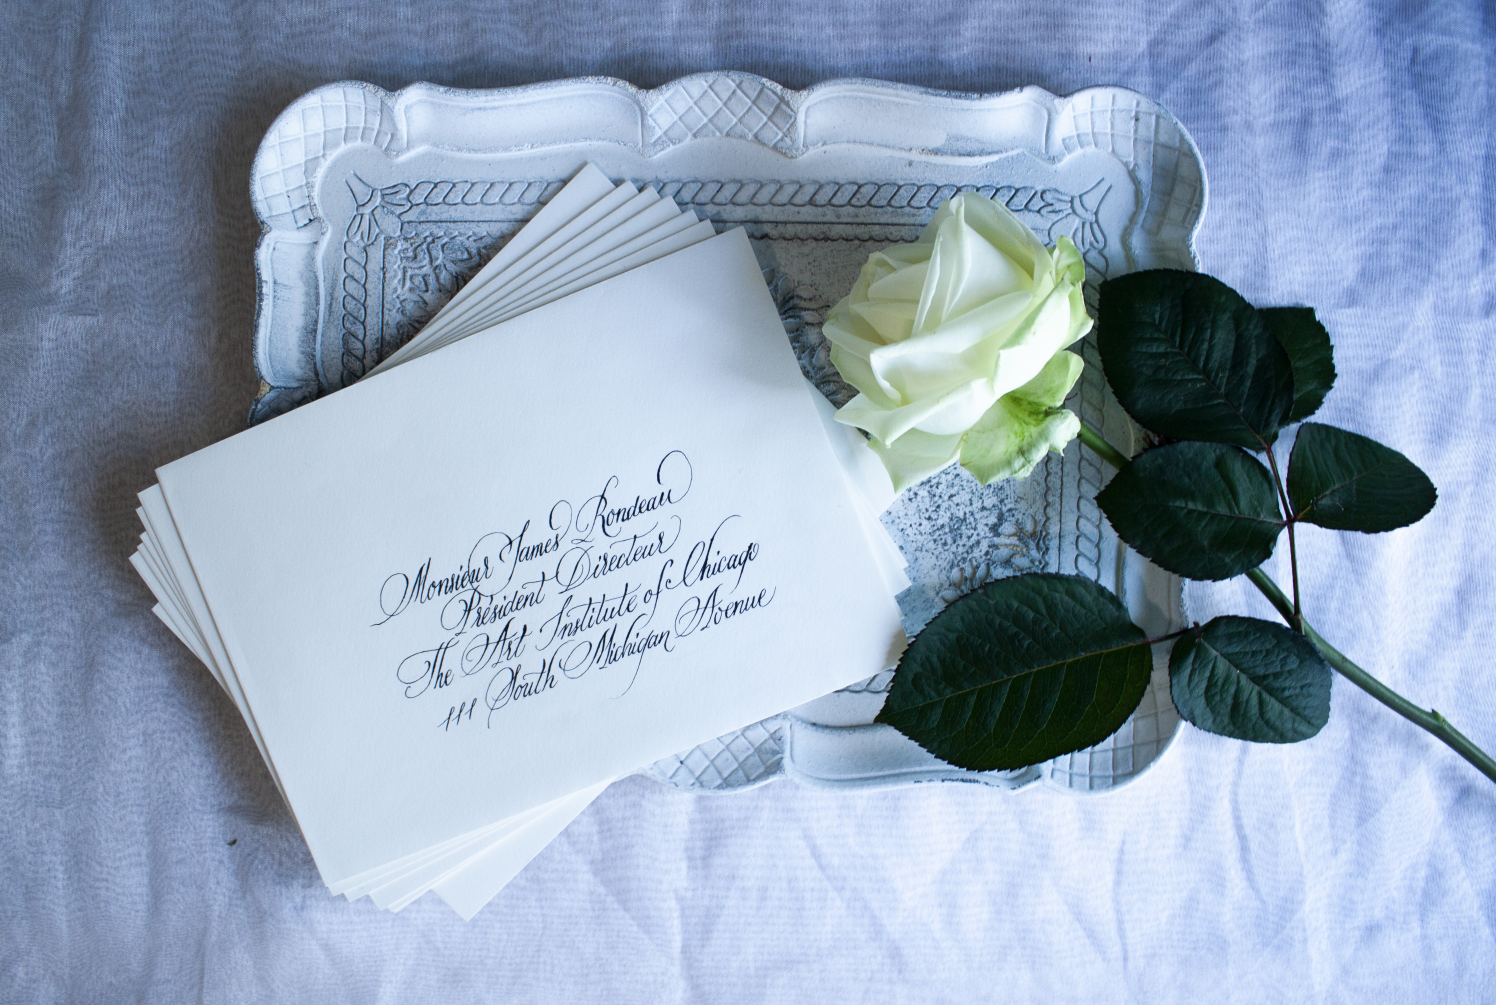 Monsieur James Rondeau
Président Directeur
The Art Institute of Chicago
111 South Michigan Avenue